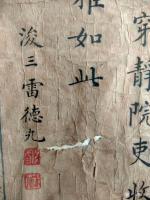 穿靜院吏收
雅如此
浚三雷德丸